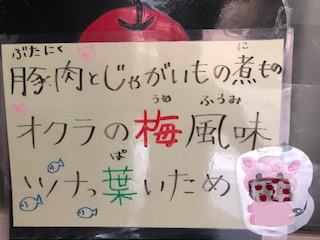 ぶたにく に
豚肉とじゃがいもの煮もの
うめ ふうみ
オクラの梅風味
ぱ
ツナっ葉いため